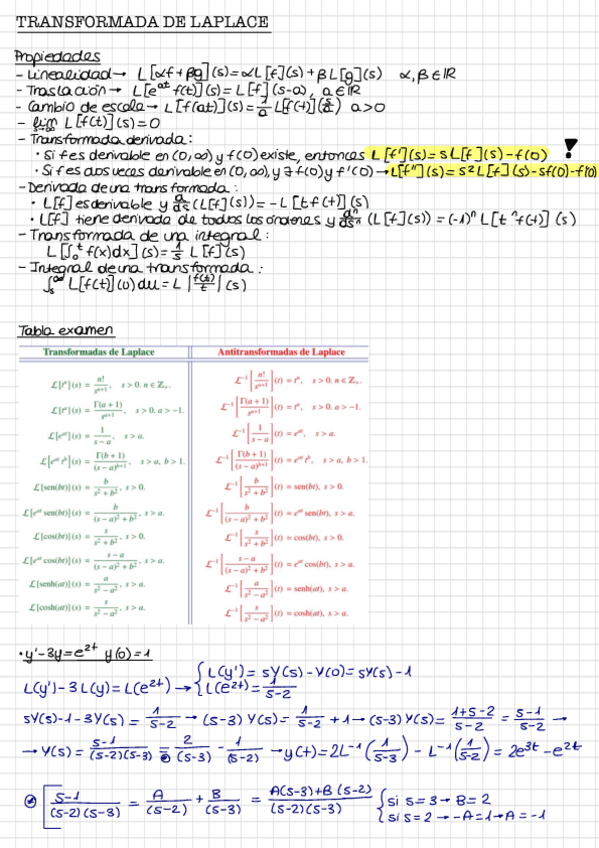 TRANSFORMADA DE LAPLACE
Propiedades
- Linealidad → L[αf + βg](s) = αL[f](s) + βL[g](s) α, β ∈ IR
- Traslación → L[e^at f(t)](s) = L[f](s-a), a ∈ IR
- Cambio de escala → L[f(at)](s) = 1/a L[f(t)](s/a) a>0
- lim s→∞ L[f(t)](s) = 0
- Transformada derivada:
· Si f es derivable en (0, ∞) y f(0) existe, entonces L[f'](s) = sL[f](s) - f(0) !
· Si f es dos veces derivable en (0, ∞), y ∃ f(0) y f'(0) → L[f''](s) = s² L[f](s) - sf(0) - f'(0)
- Derivada de una transformada:
· L[f] es derivable y d/ds (L[f](s)) = -L[t f(t)](s)
· L[f] tiene derivada de todos los órdenes y d^n/ds^n (L[f](s)) = (-1)^n L[t^n f(t)](s)
- Transformada de una integral:
L[∫₀^t f(x)dx](s) = 1/s L[f](s)
- Integral de una transformada:
∫s^∞ L[f(t)](u) du = L|f(t)/t|(s)
Tabla examen
Transformadas de Laplace Antitransformadas de Laplace
ℒ[t^n](s) = n!/s^(n+1), s > 0, n ∈ Z₊. ℒ⁻¹[n!/s^(n+1)](t) = t^n, s > 0, n ∈ Z₊.
ℒ[t^a](s) = Γ(a + 1)/s^(a+1), s > 0, a > -1. ℒ⁻¹[Γ(a + 1)/s^(a+1)](t) = t^a, s > 0, a > -1.
ℒ[e^at](s) = 1/(s - a), s > a. ℒ⁻¹[1/(s - a)](t) = e^at, s > a.
ℒ[e^at t^b](s) = Γ(b + 1)/(s - a)^(b+1), s > a, b > 1. ℒ⁻¹[Γ(b + 1)/(s - a)^(b+1)](t) = e^at t^b, s > a, b > 1.
ℒ[sen(bt)](s) = b/(s² + b²), s > 0. ℒ⁻¹[b/(s² + b²)](t) = sen(bt), s > 0.
ℒ[e^at sen(bt)](s) = b/((s - a)² + b²), s > a. ℒ⁻¹[b/((s - a)² + b²)](t) = e^at sen(bt), s > a.
ℒ[cos(bt)](s) = s/(s² + b²), s > 0. ℒ⁻¹[s/(s² + b²)](t) = cos(bt), s > 0.
ℒ[e^at cos(bt)](s) = (s - a)/((s - a)² + b²), s > a. ℒ⁻¹[(s - a)/((s - a)² + b²)](t) = e^at cos(bt), s > a.
ℒ[senh(at)](s) = a/(s² - a²), s > a. ℒ⁻¹[a/(s² - a²)](t) = senh(at), s > a.
ℒ[cosh(at)](s) = s/(s² - a²), s > a. ℒ⁻¹[s/(s² - a²)](t) = cosh(at), s > a.
· y' - 3y = e^2t y(0) = 1
L(y') - 3L(y) = L(e^2t) → { L(y') = sY(s) - Y(0) = sY(s) - 1
L(e^2t) = 1/(s-2)
sY(s) - 1 - 3Y(s) = 1/(s-2) → (s-3) Y(s) = 1/(s-2) + 1 → (s-3) Y(s) = (1+s-2)/(s-2) = (s-1)/(s-2) →
→ Y(s) = (s-1)/((s-2)(s-3)) =⊛ 2/(s-3) - 1/(s-2) → y(t) = 2L⁻¹(1/(s-3)) - L⁻¹(1/(s-2)) = 2e^3t - e^2t
⊛ [ (s-1)/((s-2)(s-3)) = A/(s-2) + B/(s-3) = (A(s-3)+B(s-2))/((s-2)(s-3)) { si s=3 → B=2
si s=2 → -A=1 → A=-1